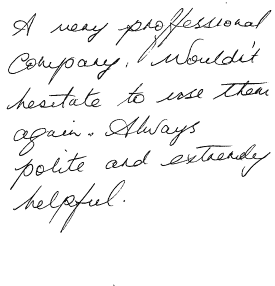 A very proffessional
Company. Wouldn't
hesitate to use them
again. Always
polite and extremely
helpful.